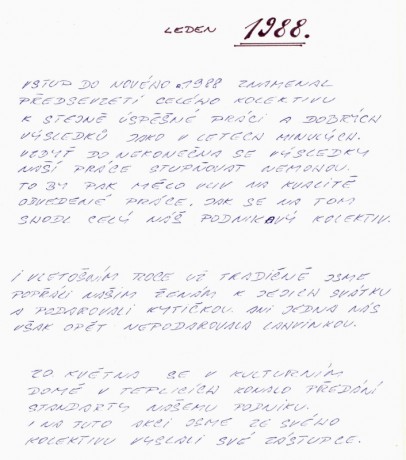 LEDEN 1988.
VSTUP DO NOVÉHO 1988 ZNAMENAL
PŘEDSEVZETÍ CELÉHO KOLEKTIVU
K STEJNĚ ÚSPĚŠNÉ PRÁCI A DOBRÝCH
VÝSLEDKŮ JAKO V LETECH MINULÝCH.
VŽDYŤ DO NEKONEČNA SE VÝSLEDKY
NAŠÍ PRÁCE STUPŇOVAT NEMOHOU.
TO BY PAK MĚLO VLIV NA KVALITĚ
ODVEDENÉ PRÁCE. JAK SE NA TOM
SHODL CELÝ NÁŠ PODNIKOVÝ KOLEKTIV.
I V LETOŠNÍM ROCE UŽ TRADIČNĚ JSME
POPŘÁLI NAŠIM ŽENÁM K JEJICH SVÁTKU
A PODAROVALI KYTIČKOU. ANI JEDNA NÁS
VŠAK OPĚT NEPODAROVALA LAHVINKOU.
20 KVĚTNA SE V KULTURNÍM
DOMĚ V TEPLICÍCH KONALO PŘEDÁNÍ
STANDARTY NAŠEMU PODNIKU.
I NA TUTO AKCI JSME ZE SVÉHO
KOLEKTIVU VYSLALI SVÉ ZÁSTUPCE.